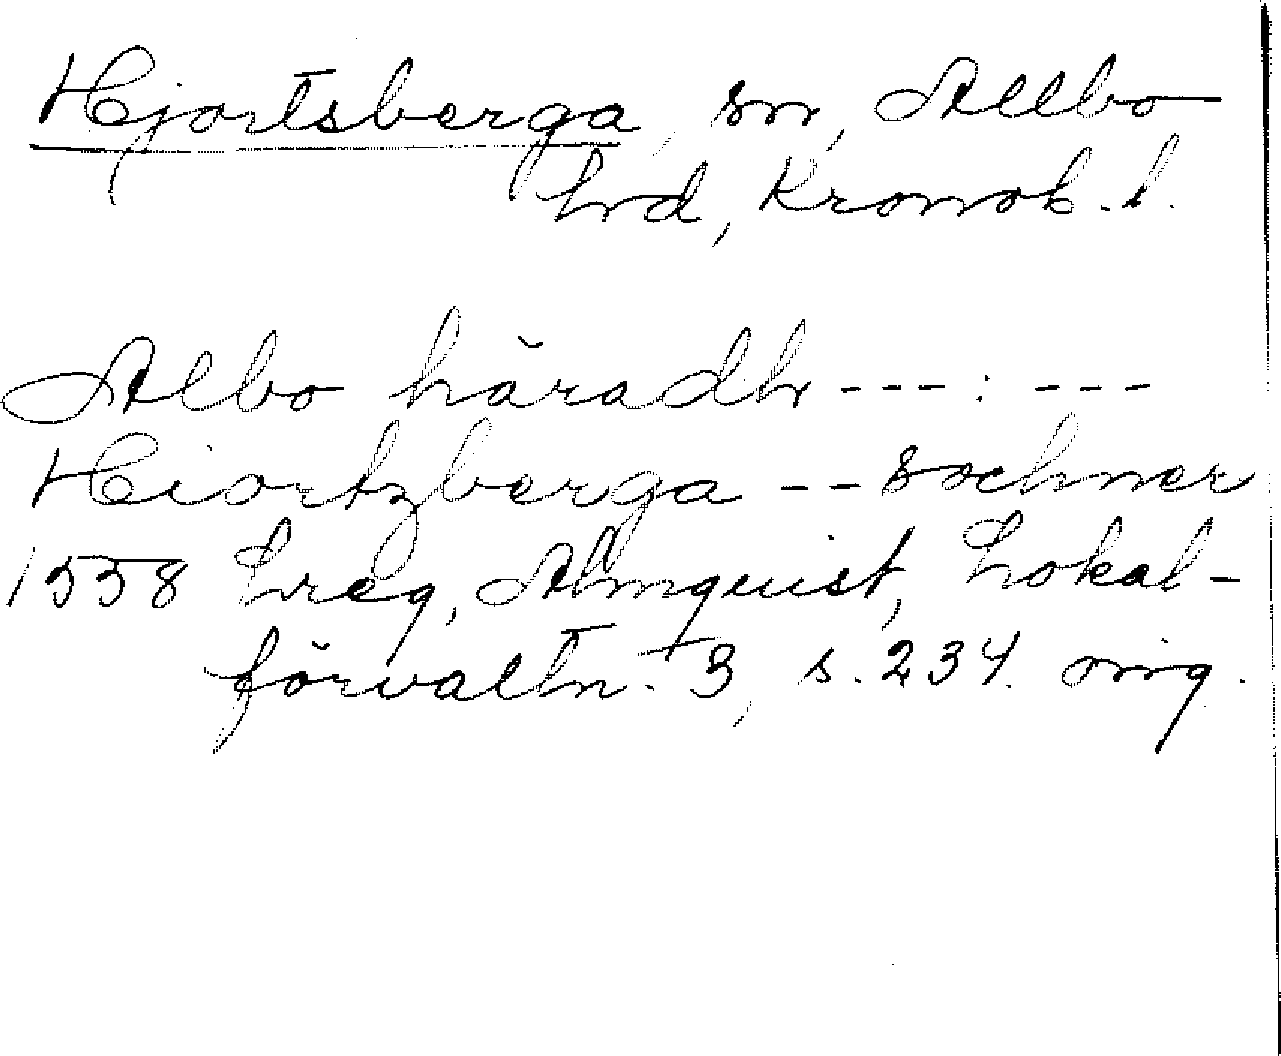 Hjortsberga, sn, Allbo
hd, Kronob. l.
Albo häradh ---: ---
Hiortzberga -- sochner
1558 hreg, Almquist, Lokal-
förvaltn. 3, s. 234. orig.